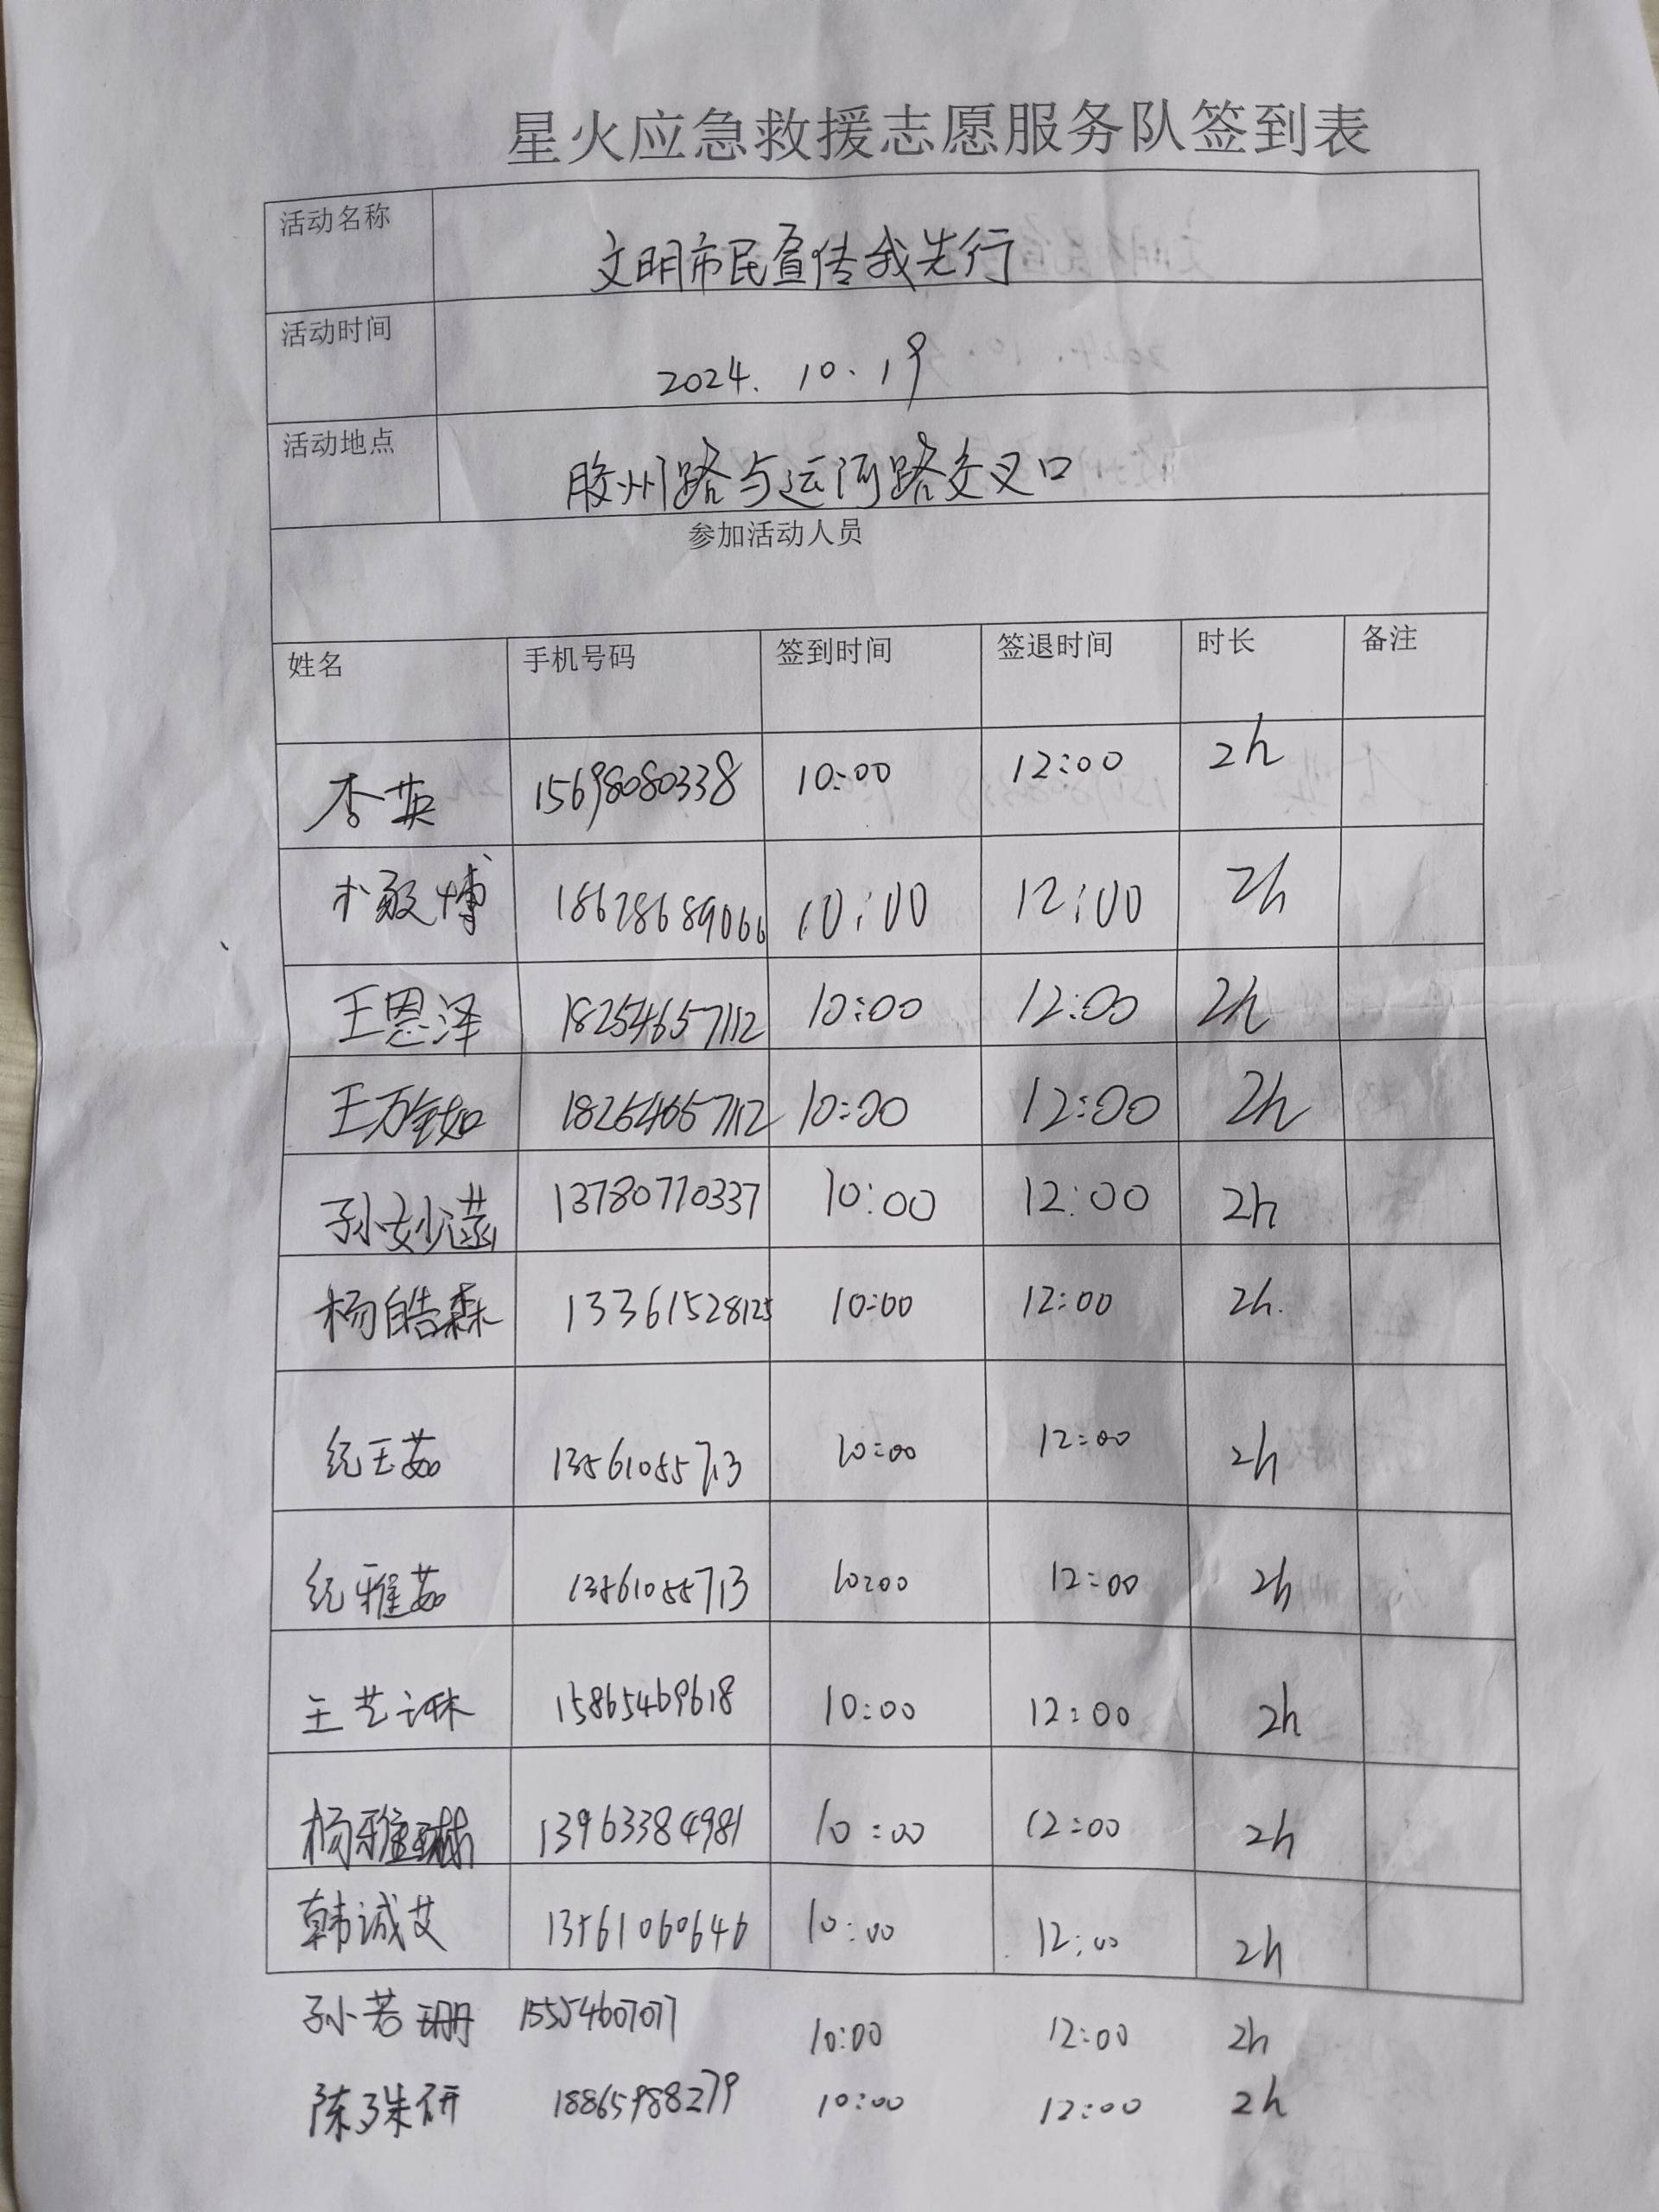 星火应急救援志愿服务队签到表
活动名称 文明市民宣传我先行
活动时间 2024.10.19
活动地点 胶州路与运河路交叉口
参加活动人员
姓名 手机号码 签到时间 签退时间 时长 备注
李英 15698080338 10:00 12:00 2h
敬博 18678689066 10:00 12:00 2h
王恩泽 18254657112 10:00 12:00 2h
王万铷 18254657112 10:00 12:00 2h
孙妙菡 13780770337 10:00 12:00 2h
杨皓森 13361528125 10:00 12:00 2h.
纪玉茹 13561055713 10:00 12:00 2h
纪雅茹 13561055713 10:00 12:00 2h
王艺琳 15865469618 10:00 12:00 2h
杨雅琳 13963384981 10:00 12:00 2h
韩诚艾 13561060646 10:00 12:00 2h
孙若珊 15554607077 10:00 12:00 2h
陈殊研 18865988279 10:00 12:00 2h